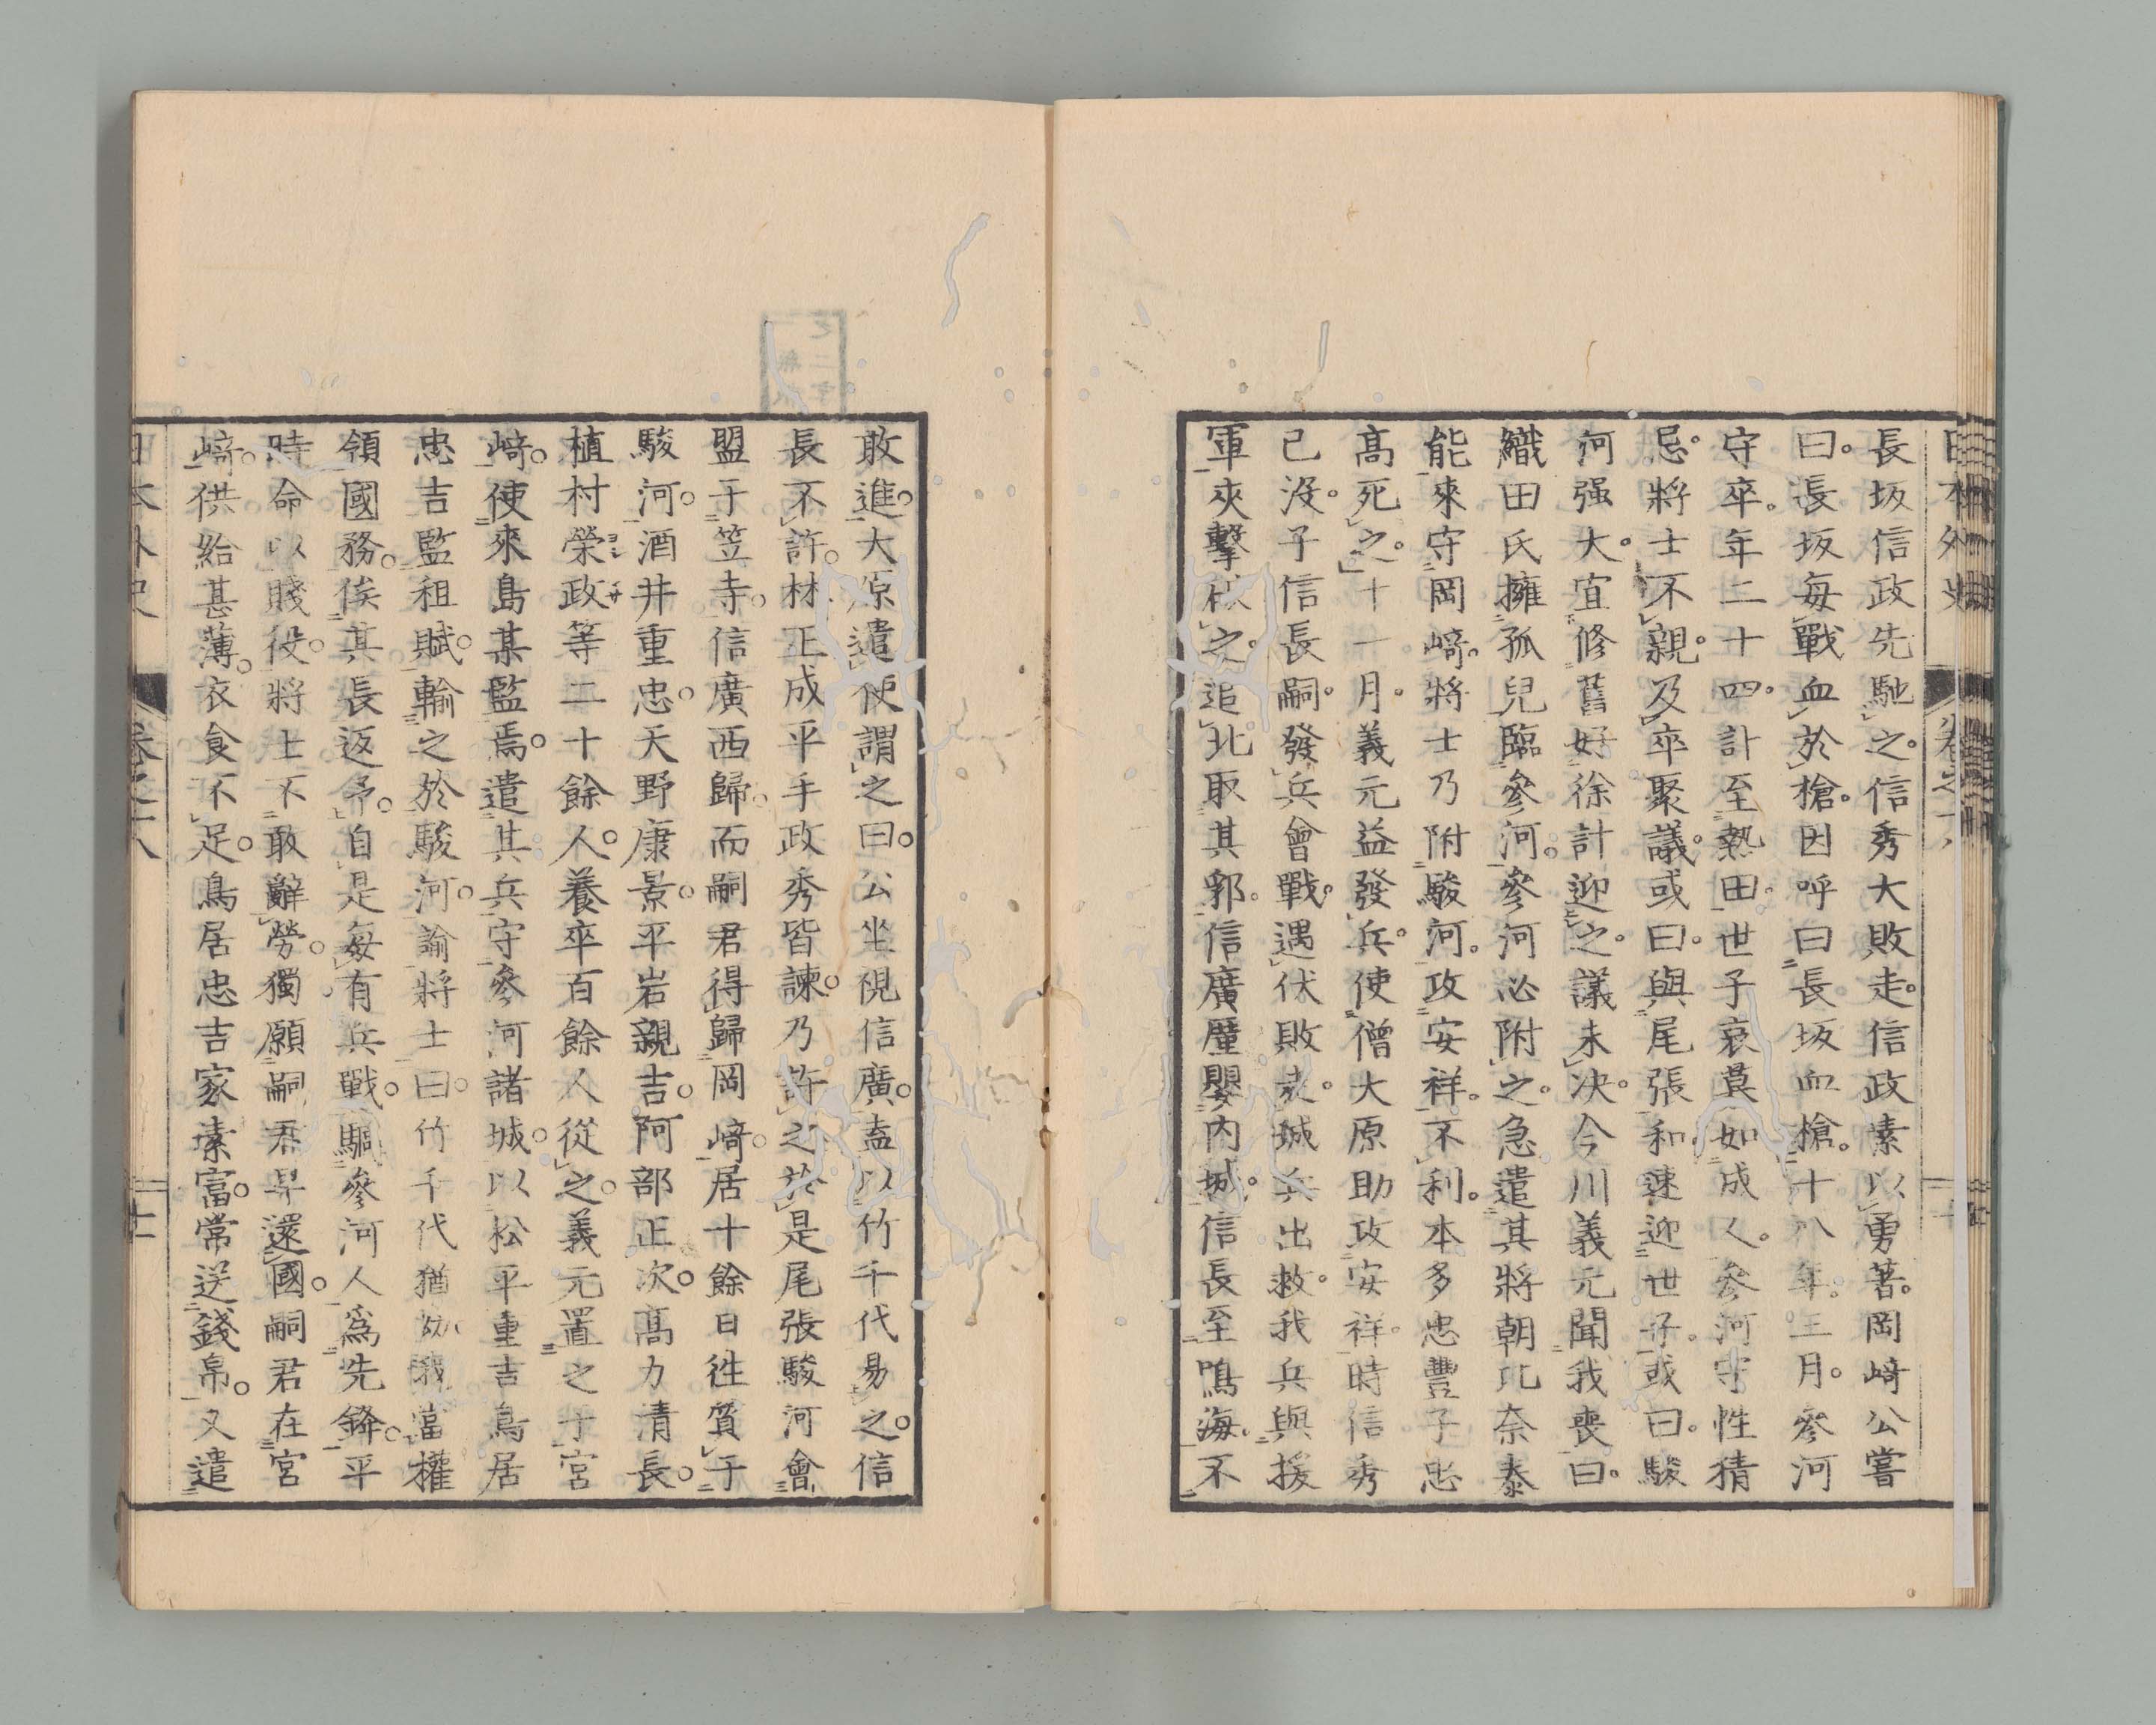 長坂信政先馳之。信秀大敗走。信政素以勇著。岡﨑公嘗
曰。長坂每戰血於槍。因呼曰長坂血槍。十八年。三月。參河
守卒。年二十四。計至熱田。世子哀莫如成人。參河守性猜
忌。將士不親。及卒聚議。或曰。與尾張和。速迎世子。或曰。駿
河强大。宜修舊好徐計迎之。議未决。今川義元聞我喪曰。
織田氏擁孤兒臨參河。參河必附之。急遣其將朝比奈泰
能來守岡﨑。將士乃附駿河。攻安祥。不利。本多忠豐子忠
高死之。十一月。義元益發兵。使僧大原助攻安祥。時信秀
已沒。子信長嗣。發兵會戰。遇伏敗走。城兵出救。我兵與援
軍夾擊之。追北取其郭。信廣厪嬰內城。信長至鳴海。不
敢進。大原遣使謂之曰。公坐視信廣。盍以竹千代易之。信
長不許。林正成平手政秀皆諫。乃許之。於是尾張駿河會
盟于笠寺。信廣西歸。而嗣君得歸岡﨑。居十餘日往質于
駿河。酒井重忠。天野康景。平岩親吉。阿部正次。高力清長。
植村榮政等二十餘人。養卒百餘人從之。義元置之于宮
﨑。使來島某監焉。遣其兵守參河諸城。以松平重吉鳥居
忠吉監租賦。輸之於駿河。諭將士曰。竹千代猶幼。我當權
領國務。俟其長返予。自是每有兵戰。驅參河人爲先鋒。平
時命以賤役。將士不敢辭勞。獨願嗣君早還國。嗣君在宮
﨑。供給甚薄。衣食不足。鳥居忠吉家素富。常送錢帛。又遣